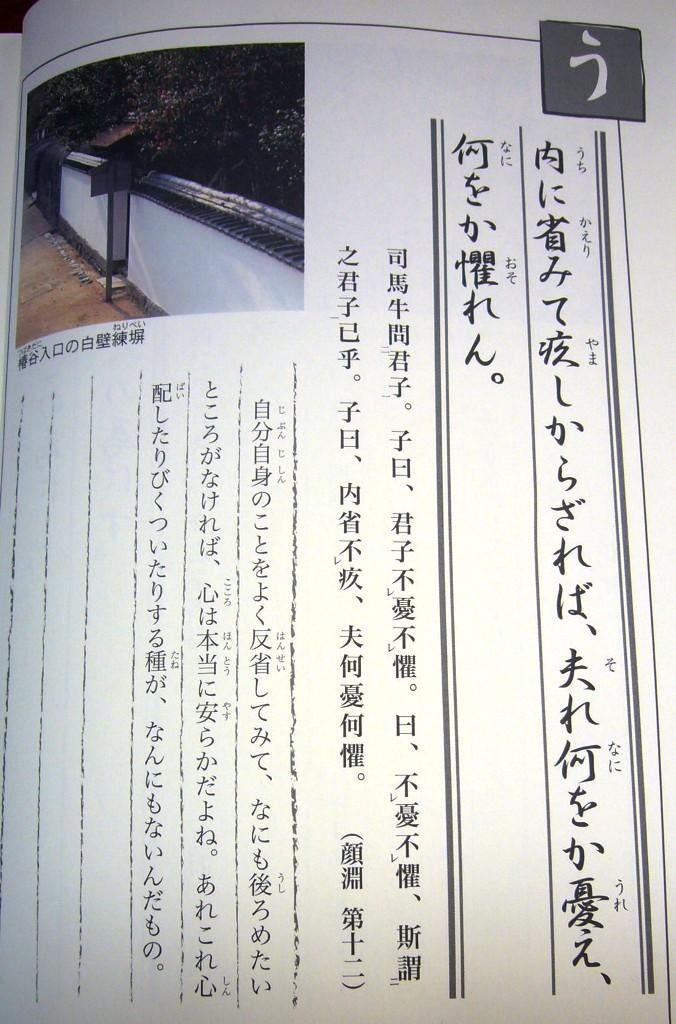 う
内に省みて疚しからざれば、夫れ何をか憂え、
何をか懼れん。
司馬牛問君子。子曰、君子不憂不懼。曰、不憂不懼、斯謂
之君子已乎。子曰、内省不疚、夫何憂何懼。 (顔淵 第十二)
自分自身のことをよく反省してみて、なにも後ろめたい
ところがなければ、心は本当に安らかだよね。あれこれ心
配したりびくついたりする種が、なんにもないんだもの。
椿谷入口の白壁練塀